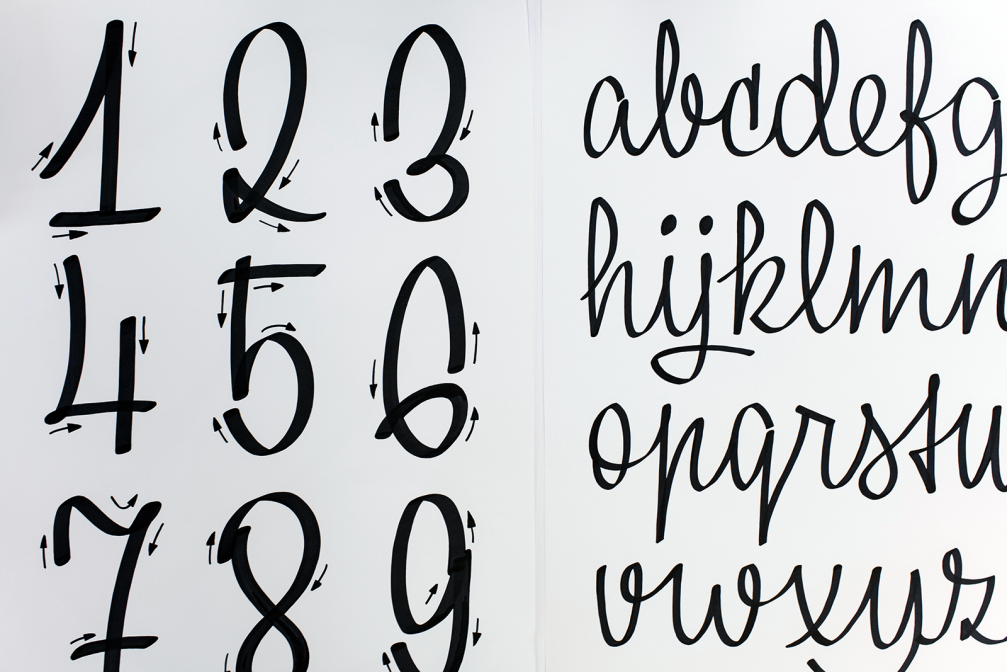 1 2 3
4 5 6
7 8 9
abcdefg
hijklmn
opqrstu
vwxyz